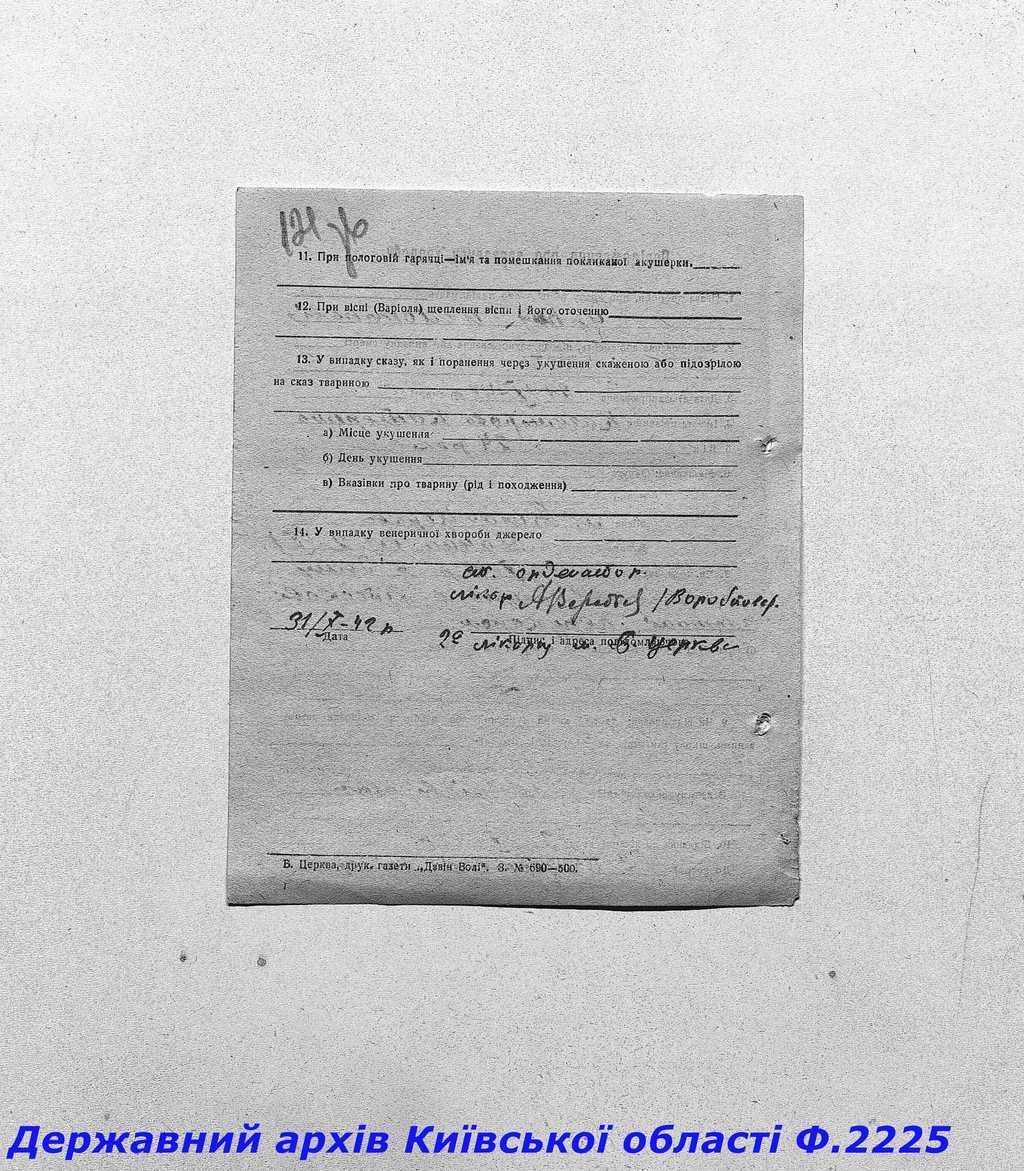 11. При пологовій гарячці—ім'я та помешкання покликаної акушерки.
12. При віспі (Варіоля) щеплення віспи і його оточенню
13. У випадку сказу, як і поранення через укушення скаженою або підозрілою
на сказ твариною
а) Місце укушення
б) День укушення
в) Вказівки про тварину (рід і походження)
14. У випадку венеричної хвороби джерело
ст. ординатор
лікар
31/X-42 р
Дата
Підпис і адреса
2а лікарня м. Б Церква
Б. Церква, друк. газети „Дзвін Волі". З. № 690—500.
Державний архів Київської області Ф.2225